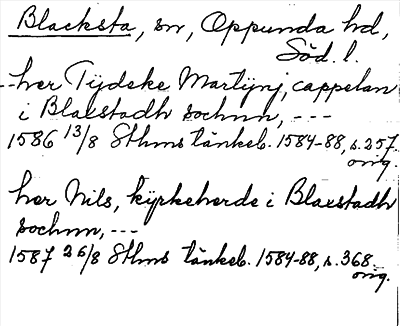 Blacksta, sn, Oppunda hd,
Söd. l.
--her Tijdeke Martijnj, cappelan
i Blaxstadh sochnn, ---
1586 13/8 Sthms tänkeb. 1584-88, s. 257.
orig.
her Nils, kyrkeherde i Blaxstadh
sochnn, ---
1587 26/8 Sthms tänkeb. 1584-88, s. 368.
orig.